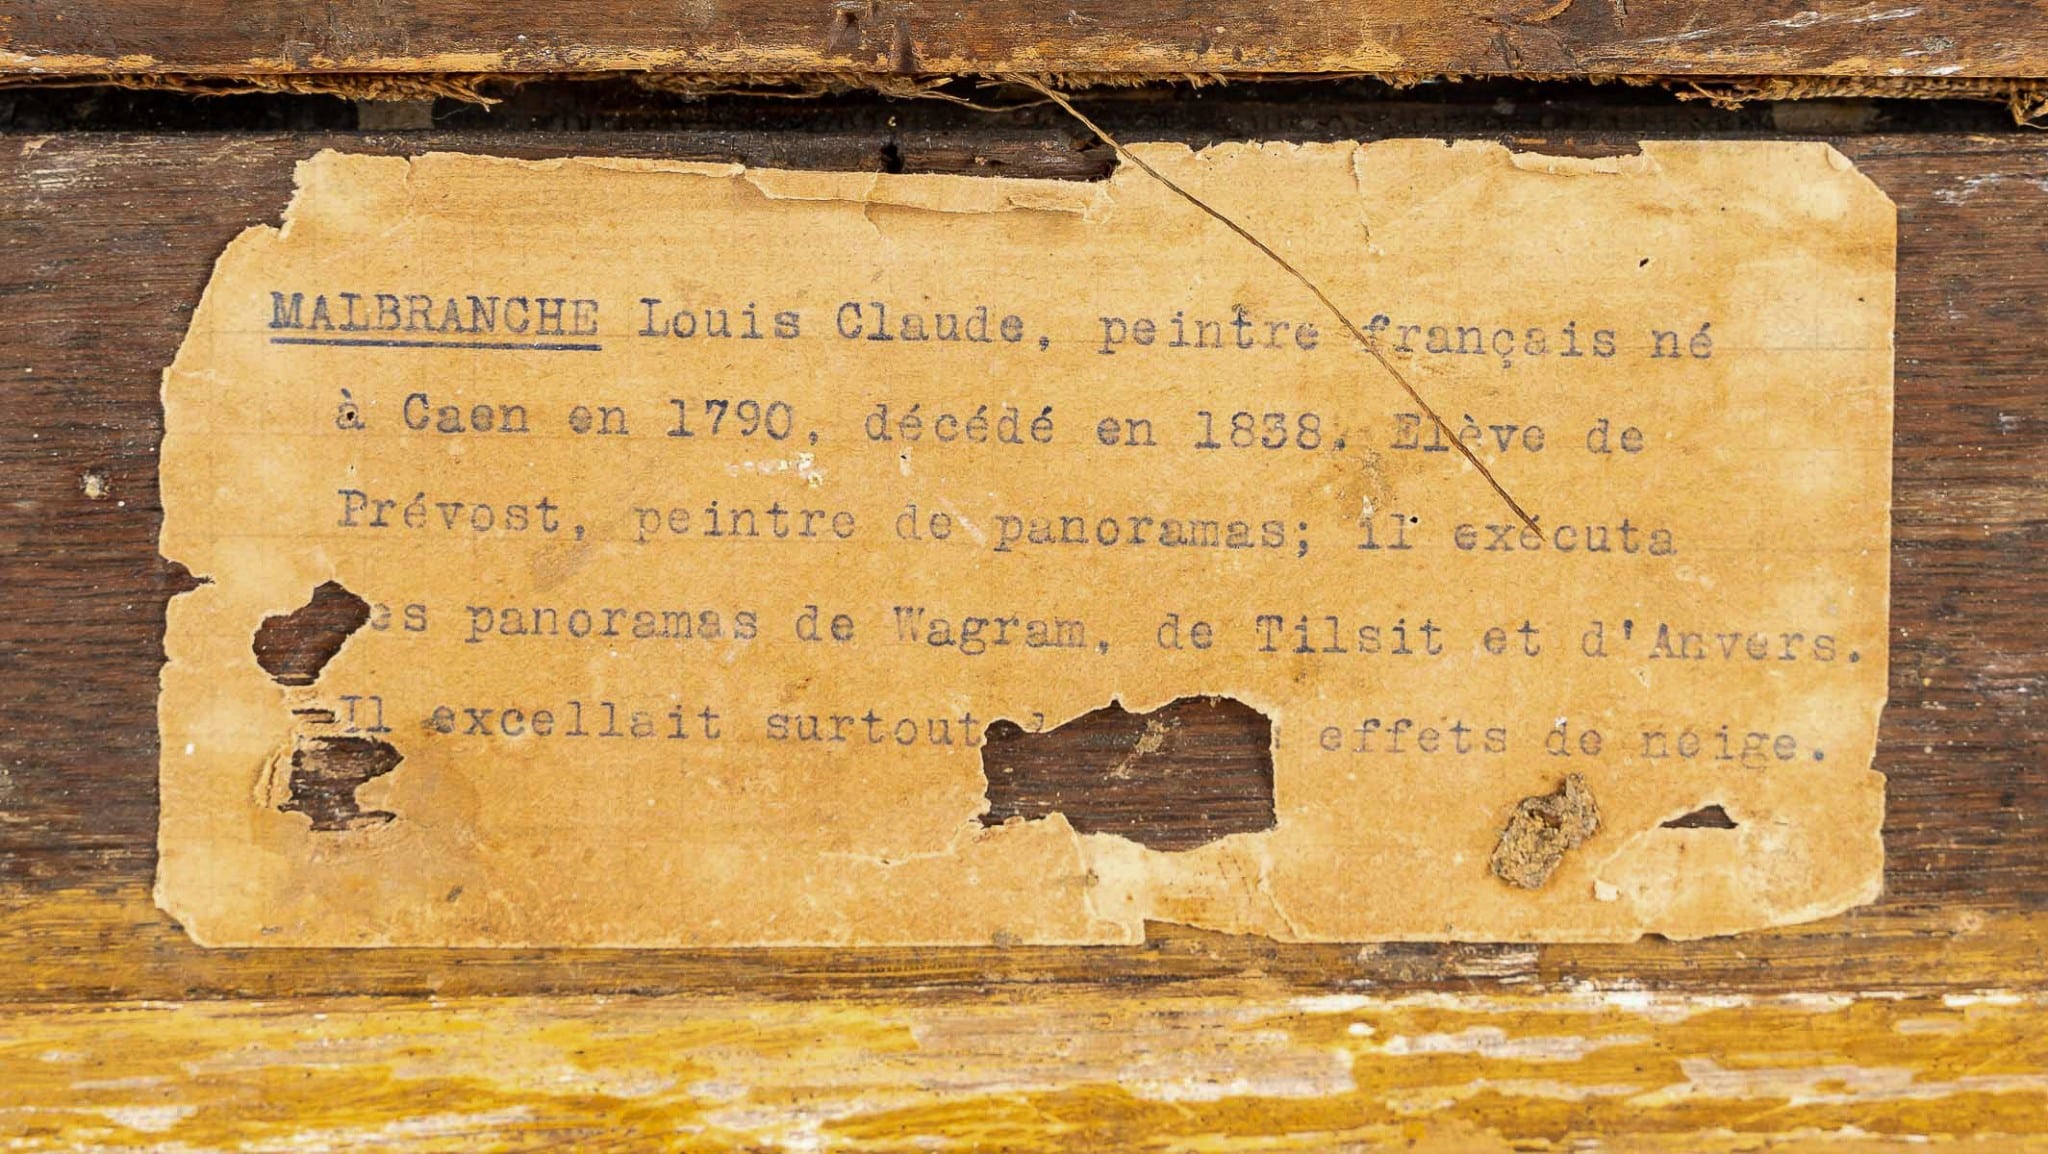 MALBRANCHE Louis Claude, peintre français né
à Caen en 1790, décédé en 1838. Elève de
Prévost, peintre de panoramas; il exécuta
es panoramas de Wagram, de Tilsit et d'Anvers.
Il excellait surtout effets de neige.